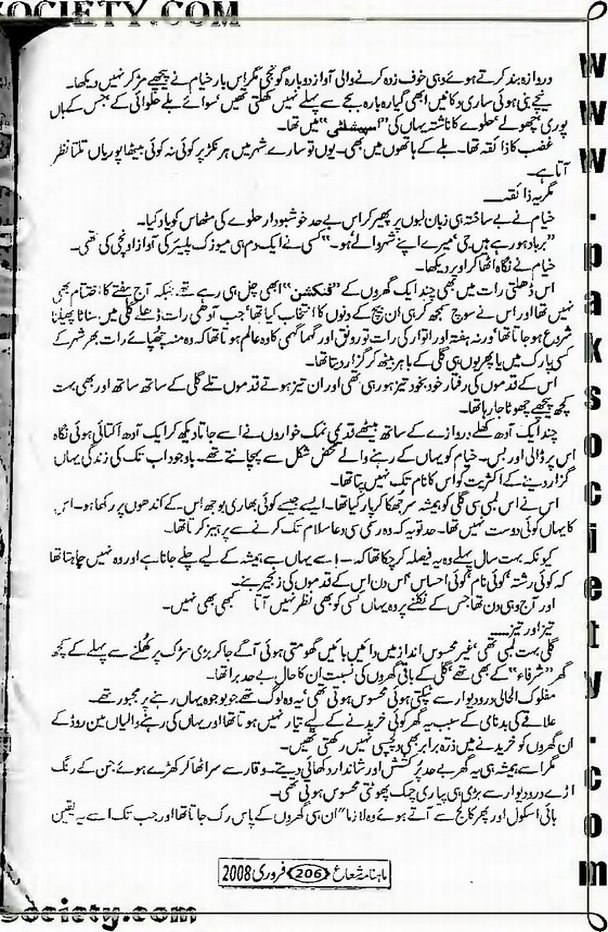 SOCIETY.COM
دروازہ بند کرتے ہوئے وہی خوف زدہ کرنے والی آواز دوبارہ گونجی مگر اس بار خیام نے پیچھے مڑ کر نہیں دیکھا۔
نیچے بنی ہوئی ساری دکانیں ابھی گیارہ بارہ بجے سے پہلے نہیں کھلتی تھیں، سوائے بلے حلوائی کے، جس کے ہاں
پوری، چھولے، حلوے کا ناشتہ یہاں کی ”اسپیشلٹی“ میں تھا۔
غضب کا ذائقہ تھا۔ بلے کے ہاتھوں میں بھی۔ یوں تو سارے شہر میں ہر نکڑ پر کوئی نہ کوئی بیٹھا پوریاں تلتا نظر
آتا ہے۔
مگر یہ ذائقہ۔۔۔
خیام نے بے ساختہ ہی زبان لبوں پر پھیر کر اس بے حد خوشبودار حلوے کی مٹھاس کو یاد کیا۔
”برباد ہو رہے ہیں جی، میرے اپنے شہر والے، ہو۔“ کسی نے ایک دم ہی میوزک پلیئر کی آواز اونچی کی تھی۔
خیام نے نگاہ اٹھا کر اوپر دیکھا۔
اس ڈھلتی رات میں بھی چند ایک گھروں کے ”فنکشن“ ابھی چل ہی رہے تھے جبکہ آج ہفتے کا اختتام بھی
نہیں تھا اور اس نے سوچ سمجھ کر ہی ان بیچ کے دنوں کا انتخاب کیا تھا، جب آدھی رات ڈھلے گلی میں سناٹا پھیلنا
شروع ہو جاتا تھا، ورنہ ہفتہ اور اتوار کی رات تو رونق اور گہما گہمی کا وہ عالم ہوتا تھا کہ وہ منہ چھپائے رات بھر شہر کے
کسی پارک میں یا پھر یوں ہی گلی کے باہر بیٹھ کر گزار دیتا تھا۔
اس کے قدموں کی رفتار خود بخود تیز ہو رہی تھی اور ان تیز ہوتے قدموں تلے گلی کے ساتھ ساتھ اور بھی بہت
کچھ پیچھے چھوٹا جا رہا تھا۔
چند ایک آدھ کھلے دروازے کے ساتھ بیٹھے قدیمی نمک خواروں نے اسے جاتا دیکھ کر ایک آدھ اکتائی ہوئی نگاہ
اس پر ڈالی اور بس۔ خیام کو یہاں کے رہنے والے محض شکل سے پہچانتے تھے۔ باوجود اب تک کی زندگی یہاں
گزار دینے کے اکثریت کو اس کا نام تک نہیں پتا تھا۔
اس نے اس لمبی سی گلی کو ہمیشہ سر جھکا کر پار کیا تھا۔ ایسے جیسے کوئی بھاری بوجھ اس کے کاندھوں پر رکھا ہو۔ اس
کا یہاں کوئی دوست نہیں تھا۔ حد تو یہ کہ وہ رسمی سی دعا سلام تک کرنے سے پرہیز کرتا تھا۔
کیونکہ بہت سال پہلے وہ یہ فیصلہ کر چکا تھا کہ۔۔ اسے یہاں سے ہمیشہ کے لیے چلے جانا ہے اور وہ نہیں چاہتا تھا
کہ کوئی رشتہ، کوئی نام، کوئی احساس، اس دن اس کے قدموں کی زنجیر بنے۔
اور آج وہی دن تھا جس کے نکلنے پر وہ یہاں کسی کو بھی نظر نہیں آتا کبھی بھی نہیں۔
تیز اور تیز۔۔۔
گلی بہت لمبی تھی، غیر محسوس انداز میں دائیں بائیں گھومتی ہوئی آگے جا کر بڑی سڑک پر کھلنے سے پہلے کے کچھ
گھر ”شرفاء“ کے بھی تھے، گلی کے باقی گھروں کی نسبت ان کا حال بے حد برا تھا۔
مفلوک الحالی در و دیوار سے ٹپکتی ہوئی محسوس ہوتی تھی، یہ وہ لوگ تھے جو بوجوہ یہاں رہنے پر مجبور تھے۔
علاقے کی بدنامی کے سبب یہ گھر کوئی خریدنے کے لیے تیار نہیں ہوتا تھا اور یہاں کی رہنے والیاں مین روڈ کے
ان گھروں کو خریدنے میں ذرہ برابر بھی دلچسپی نہیں رکھتی تھیں۔
مگر اسے ہمیشہ ہی یہ گھر بے حد پرکشش اور شاندار دکھائی دیتے۔ وقار سے سر اٹھا کر کھڑے ہوئے جن کے رنگ
اڑے در و دیوار سے بڑی ہی پیاری چمک پھوٹتی محسوس ہوتی تھی۔
ہائی اسکول اور پھر کالج سے آتے ہوئے وہ لازماً ”ان ہی گھروں کے پاس رک جاتا تھا اور جب تک اسے یہ یقین
ماہنامہ شعاع 206 فروری 2008
www.paksociety.com
society.com